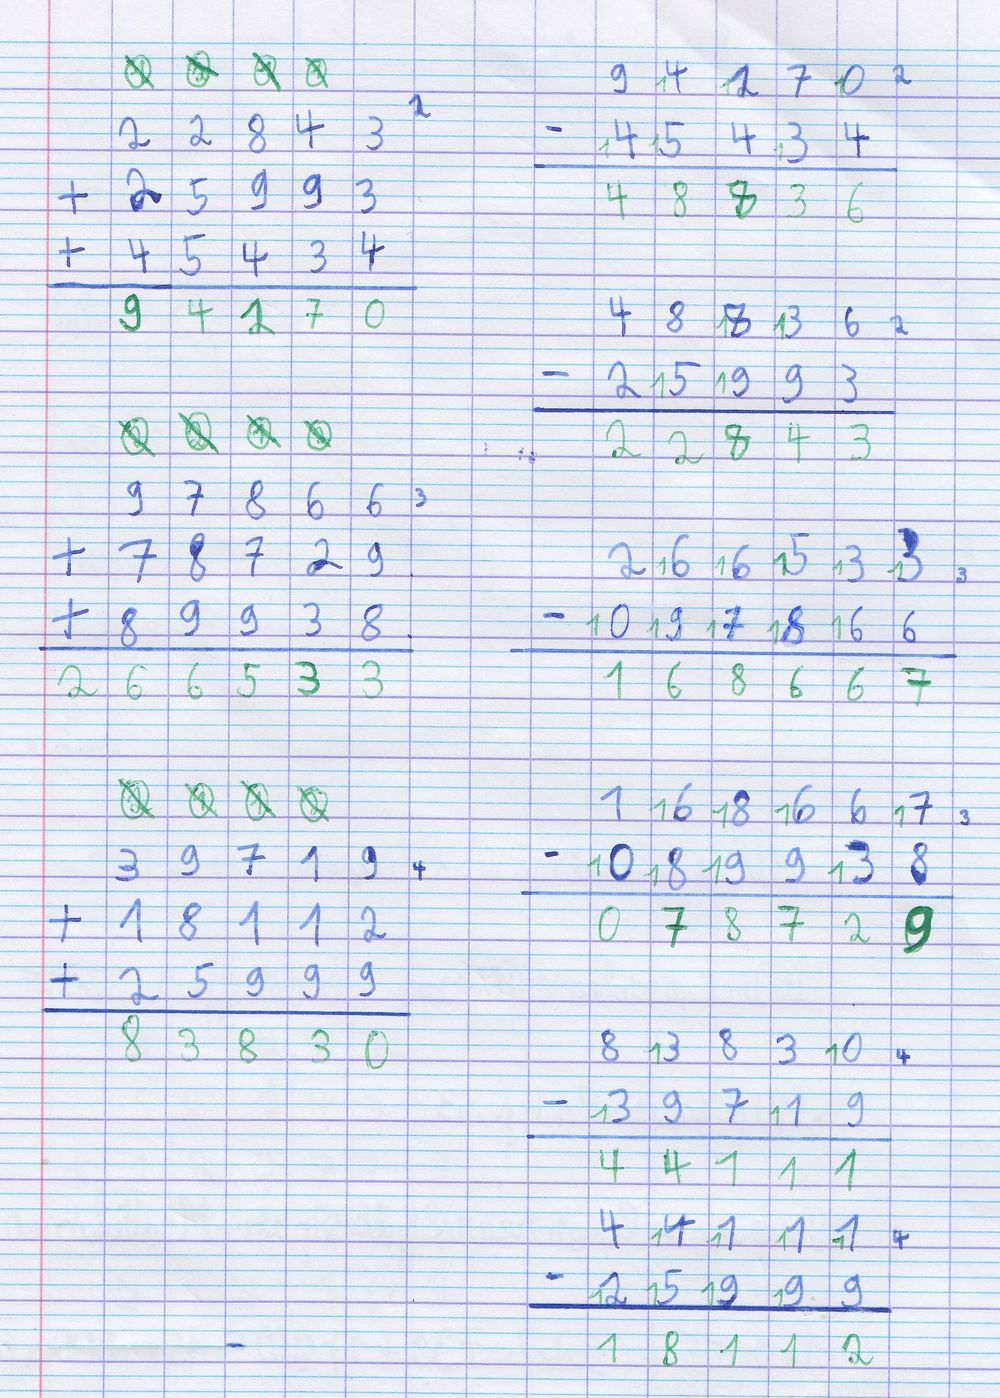 2 2 8 4 3 2
+ 2 5 9 9 3
+ 4 5 4 3 4
9 4 2 7 0
9 7 8 6 6 3
+ 7 8 7 2 9
+ 8 9 9 3 8
2 6 6 5 3 3
3 9 7 1 9 4
+ 1 8 1 1 2
+ 2 5 9 9 9
8 3 8 3 0
9 14 12 7 10 2
- 14 15 4 13 4
4 8 8 3 6
4 8 18 13 6 2
- 2 15 19 9 3
2 2 8 4 3
2 16 16 15 13 13 3
- 10 19 17 18 16 6
1 6 8 6 6 7
1 16 18 16 6 17 3
- 10 18 19 9 13 8
0 7 8 7 2 9
8 13 8 3 10 4
- 13 9 7 11 9
4 4 1 1 1
4 14 11 11 11 4
- 12 15 19 19 9
1 8 1 1 2